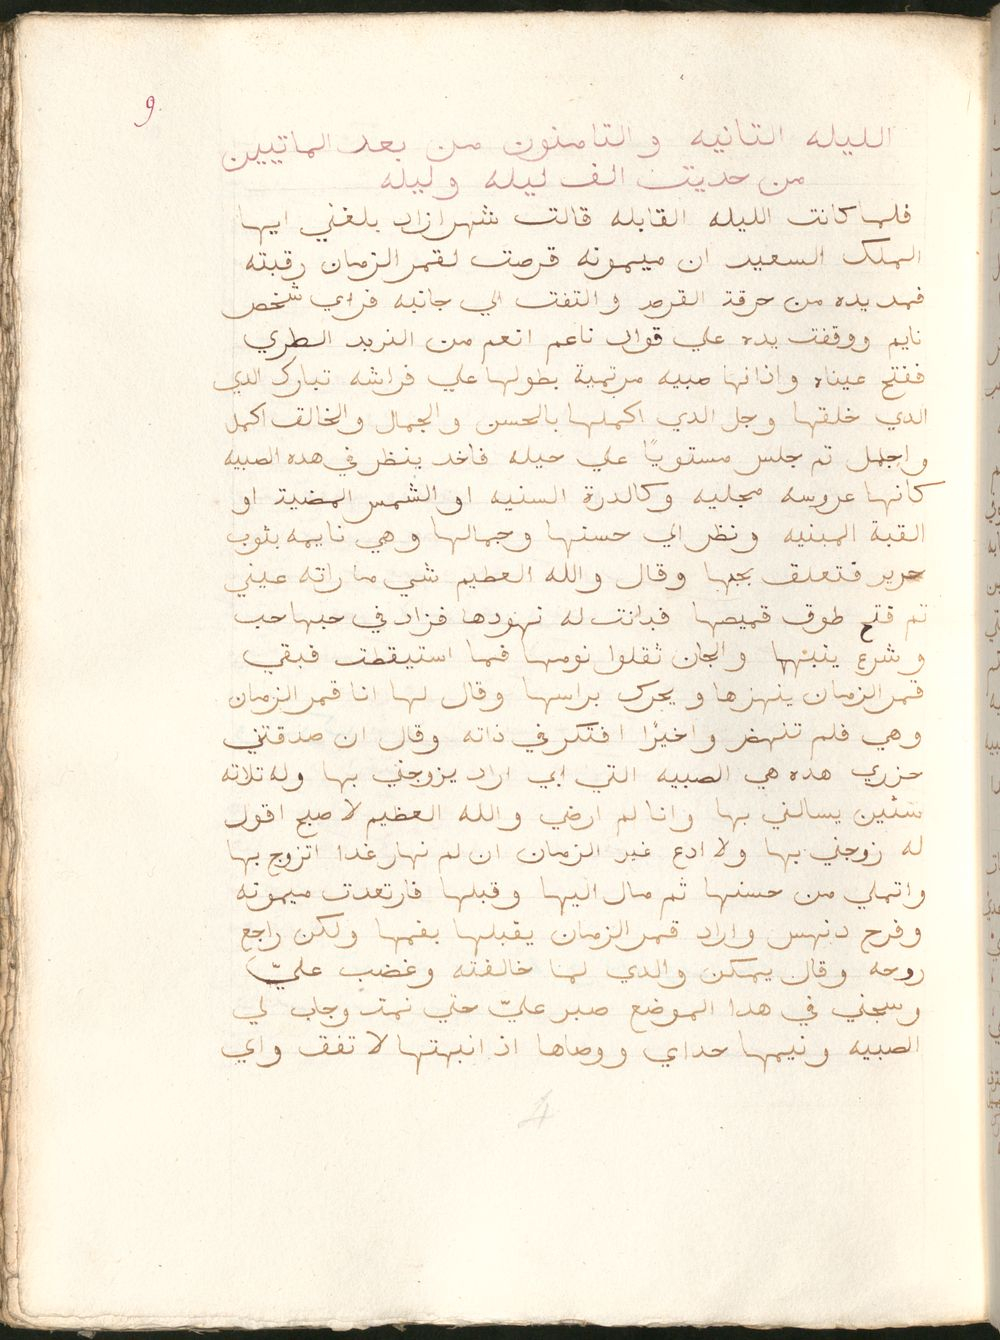 9
الليله التانيه والتامنون من بعد الماتيين
من حديت الف ليله وليله
فلما كانت الليله القابله قالت شهرازاد بلغني ايها
الملك السعيد ان ميمونه قرصت لقمر الزمان رقبته
فمد يده من حرقة القرص والتفت الي جانبه فراي شخص
نايم ووقفت يده علي قوال ناعم انعم من الزبد الطري
ففتح عيناه واذانها صبيه مرتمية بطولها علي فراشه تبارك الدي
الدي خلقها وجل الدي اكملها بالحسن والجمال والخالق اكمل
واجمل تم جلس مستويًا علي حيله فاخد ينظر في هده الصبيه
كانها عروسه مجليه وكالدرة السنيه او الشمس المضية او
القبة المبنيه ونظر الي حسنها وجمالها وهي نايمه بثوب
حرير فتعلق بحبها وقال والله العطيم شي ما راته عيني
تم فتح طوق قميصها فبانت له نهودها فزاد في حبها حب
وشرع ينبهها والجان ثقلوا نومها فما استيقطت فبقي
قمر الزمان ينهزها ويحرك براسها وقال لها انا قمر الزمان
وهي فلم تنهض واخيرًا افتكر في ذاته وقال ان صدقتني
حزري هده هي الصبيه التي ابي اراد يزوجني بها وله تلاته
سنين يسالني بها وانا لم ارضي والله العظيم لا صبح اقول
له زوجني بها ولا ادع غير الزمان ان لم نهار غدا اتزوج بها
واتملي من حسنها ثم مال اليها وقبلها فارتعدت ميمونه
وفرح دنهس واراد قمر الزمان يقبلها بفمها ولكن راجع
روحه وقال يمكن والدي لما خالفته وغضب عليّ
وسجني في هدا الموضع صبر عليّ حتي نمت وجاب لي
الصبيه ونيمها حداي ووصاها اذ انبهتها لا تفق واي